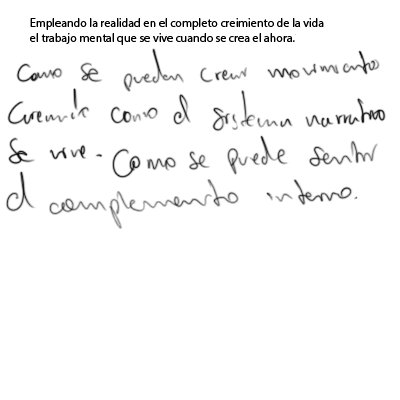 Empleando la realidad en el completo creimiento de la vida
el trabajo mental que se vive cuando se crea el ahora.
Como se pueden crear movimiento
como el sistema narrativo
se vive. Como se puede sentir
el complemento interno.